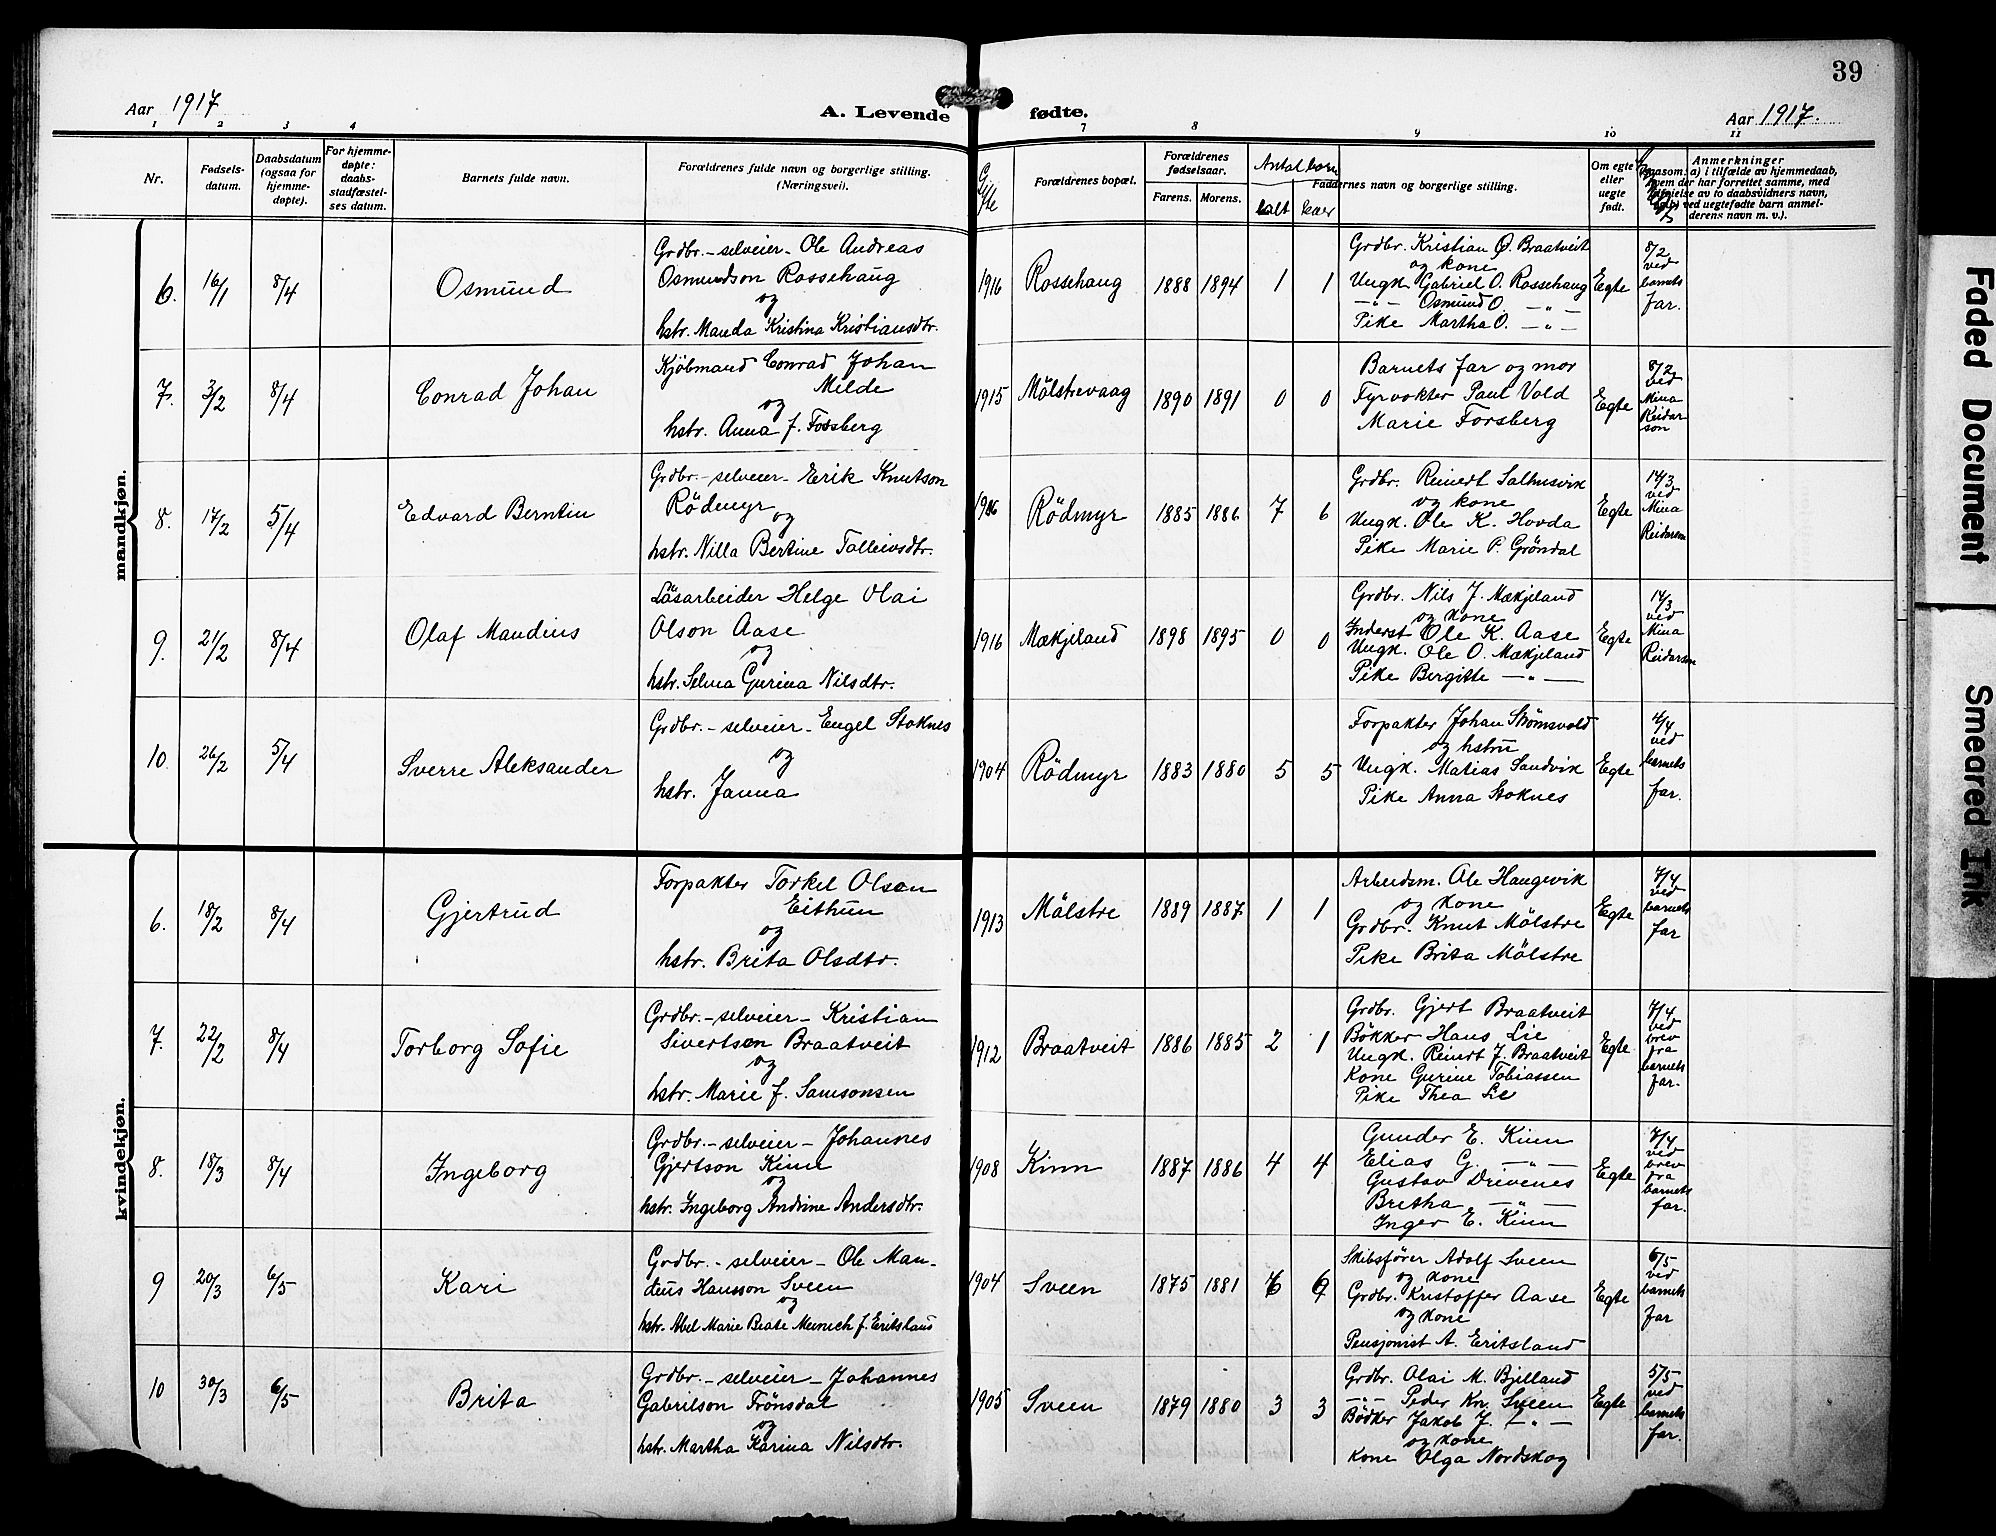 39
Aar 1917
A. Levende fødte.
Aar 1917.
1 2 3 4 7 8 9 10 11
Nr.
Fødsels-
datum.
Daabsdatum
(ogsaa for
hjemme-
døpte).
For hjemme-
døpte:
daabs-
stadfæstel-
ses datum.
Barnets fulde navn.
Forældrenes fulde navn og borgerlige stilling.
(Næringsvei).
Gifte
Forældrenes bopæl.
Forældrenes
fødselsaar.
Farens. Morens.
Antal børn
ialt
Faddernes navn og borgerlige stilling.
Om egte
eller
uegte
født.
Anmerkninger
saasom: a) i tilfælde av hjemmedaab,
hvem der har forrettet samme, med
tilføielse av to daabsvidners navn,
b) ved uegtefødte barn anmel-
derens navn m. v.).
mandkjøn.
6. 16/1 8/4 Osmund
Grdbr.-selveier- Ole Andreas
Osmundson Rossehaug
og
hstr. Manda Kristina Kristiansdtr.
1916 Rossehaug 1888 1894 1 1
Grdbr. Kristian O. Braatveit
og kone
Ungk. Gabriel O. Rossehaug
-"- Osmund O. -"-
Pike Martha O. -"-
Egte
8/2
ved
barnets
far.
7. 3/2 8/4 Conrad Johan
Kjøbmand Conrad Johan
Milde
og
hstr. Anna f. Forsberg
1915 Mölstrevaag 1890 1891 0 0
Barnets far og mor
Fyrvokter Paul Vold
Marie Forsberg
Egte
8/2
ved
Mina
Reidar-
son
8. 17/2 5/4 Edvard Berntin
Grdbr.-selveier- Erik Knutson
Rödmyr
og
hstr. Nilla Bertine Talleivsdtr.
1906 Rödmyr 1885 1886 7 6
Grdbr. Reinert Salhusvik
og kone
Ungk. Ole K. Hovda
Pike Marie P. Gröndal
Egte
14/3
ved
Mina
Reidarson
9. 21/2 8/4 Olaf Mandius
Lösarbeider Helge Olai
Olson Aase
og
hstr. Selma Gurina Nilsdtr.
1916 Mækjeland 1898 1895 0 0
Grdbr. Nils J. Mækjeland
og kone
Inderst Ole K. Aase
Ungk. Ole O. Mækjeland
Pike Bergitte -"-
Egte
14/3
ved
Mina
Reidarson
10. 26/2 5/4 Sverre Aleksander
Grdbr.-selveier- Engel Stoknes
og
hstr. Janna
1904 Rödmyr 1883 1880 5 5
Forpakter Johan Strømsvold
og hstru
Ungk. Matias Sandvik
Pike Anna Stoknes
Egte
4/4
ved
barnets
far.
kvindekjøn.
6. 18/2 8/4 Gjertrud
Forpakter Torkel Olsen
Eithun
og
hstr. Brita Olsdtr.
1913 Mölstre 1889 1887 1 1
Arbeidsm. Ole Haugevik
og kone
Grdbr. Knut Mölstre
Pike Brita Mölstre
Egte
7/4
ved
barnets
far
7. 22/2 8/4 Torborg Sofie
Grdbr.-selveier- Kristian
Sivertsen Braatveit
og
hstr. Marie f. Samsonsen
1912 Braatveit 1886 1885 2 1
Grdbr. Gjert Braatveit
Bökker Hans Lie
Ungk. Reinert J. Braatveit
Kone Gurine Tobiassen
Pike Thea Lie
Egte
7/4
ved
brev
fra
barnets
far.
8. 18/3 8/4 Ingeborg
Grdbr.-selveier- Johannes
Gjertson Kinn
og
hstr. Ingeborg Andrine Andersdtr.
1908 Kinn 1887 1886 4 4
Gunder E. Kinn
Elias G. -"-
Gustav Drivenes
Bretha -"-
Inger E. Kinn
Egte
7/4
ved
brev
fra
barnets
far.
9 20/3 6/5 Kari
Grdbr.-selveier- Ole Man-
dius Hansson Sveen
og
hstr. Abel Marie Beate Meinich f. Eritsland
1904 Sveen 1875 1881
Skibsfører Adolf Sveen
og kone
Grdbr. Kristoffer Aase
og kone
Pensjonist A. Eritsland
Egte
6/5
ved
barnets
far
10 30/3 6/5 Brita
Grdbr.-selveier- Johannes
Gabrielson Frönsdal
og
hstr. Martha Karina Nilsdtr.
1905 Sveen 1879 1880 3 3
Grdbr. Olai M. Bjelland
-"- Peder Kn. Sveen
Bödker Jakob J. -"-
og kone
Kone Olga Nordskog
Egte
5/5
ved
barnets
far.
Faded Document
Smeared Ink